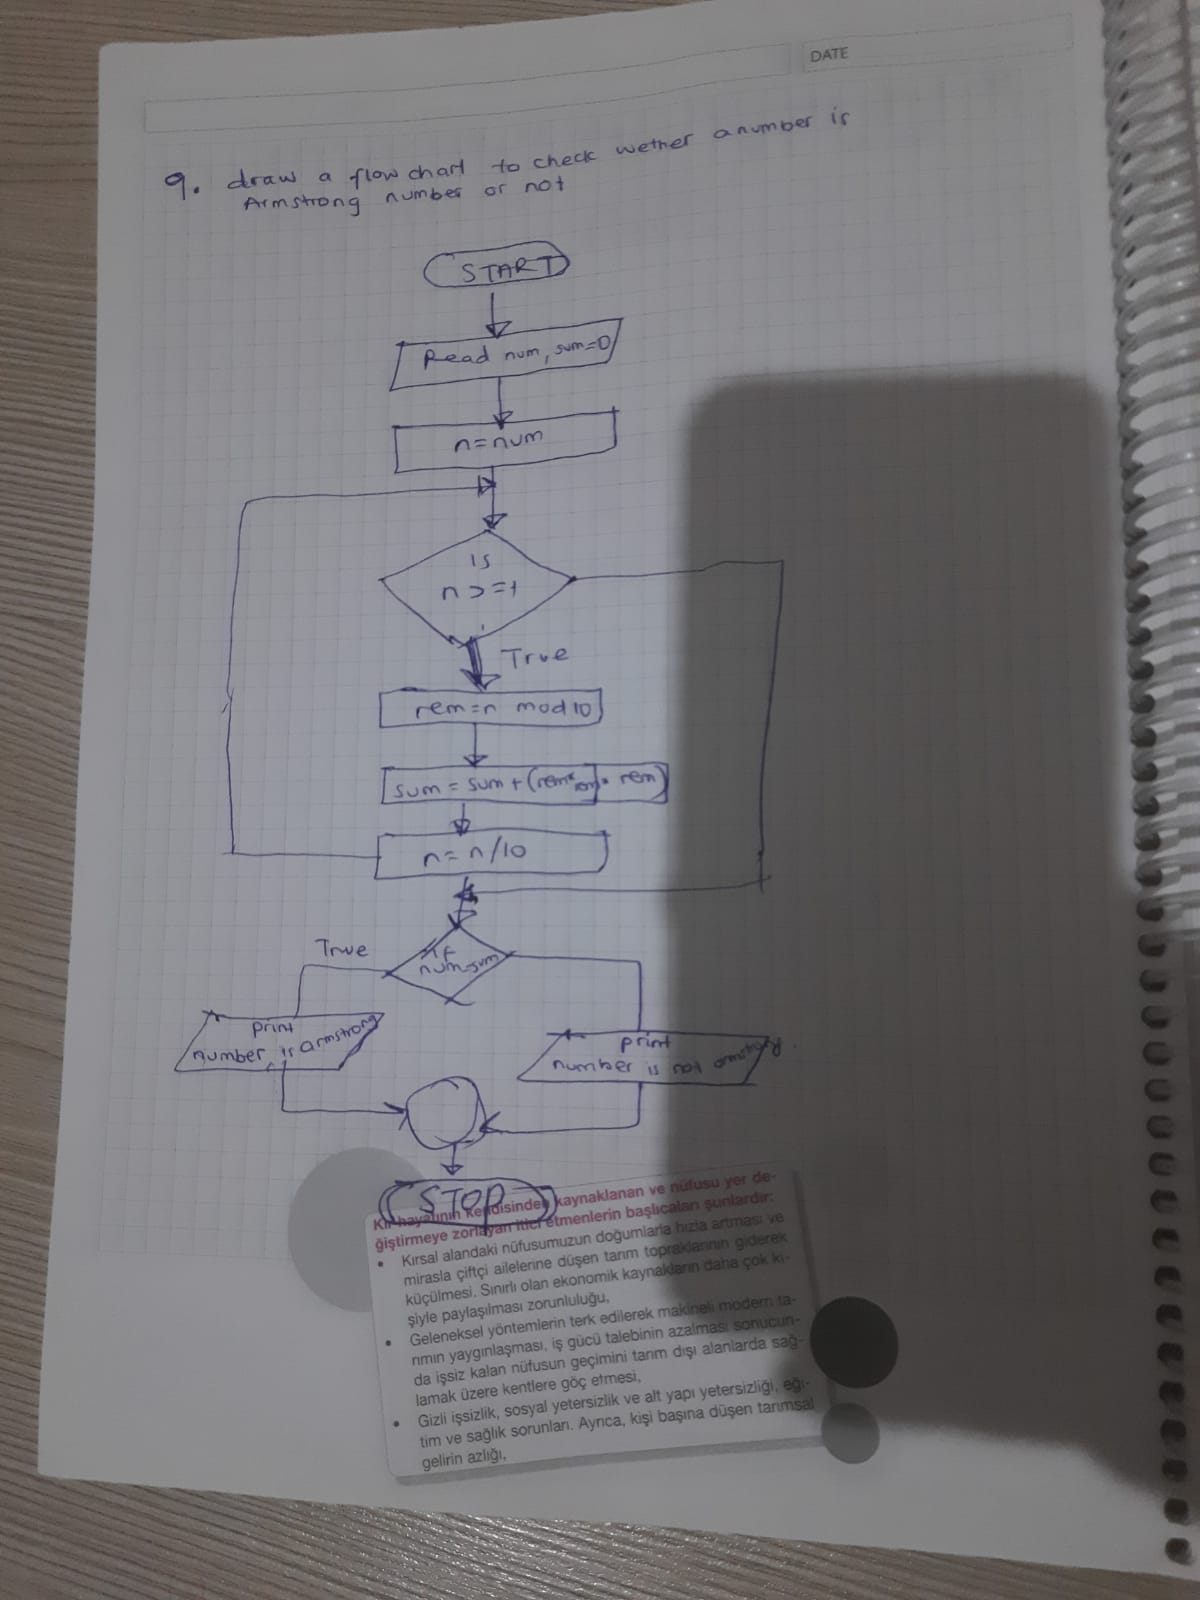 DATE
9. draw a flow chart to check wether a number is
Armstrong number or not
START
Read num, sum=0
n=num
is
n>=1
True
rem=n mod 10
sum = sum + (rem* rem)* rem)
n= n/10
True
If
num=sum
print
number is armstrong
print
number is not
STOP
Kır hayatının kendisinden kaynaklanan ve nüfusu yer de-
ğiştirmeye zorlayan itici etmenlerin başlıcaları şunlardır:
• Kırsal alandaki nüfusumuzun doğumlarla hızla artması ve
mirasla çiftçi ailelerine düşen tarım topraklarının giderek
küçülmesi. Sınırlı olan ekonomik kaynakların daha çok ki-
şiyle paylaşılması zorunluluğu,
• Geleneksel yöntemlerin terk edilerek makineli modern ta-
rımın yaygınlaşması, iş gücü talebinin azalması sonucun-
da işsiz kalan nüfusun geçimini tarım dışı alanlarda sağ-
lamak üzere kentlere göç etmesi,
• Gizli işsizlik, sosyal yetersizlik ve alt yapı yetersizliği, eği-
tim ve sağlık sorunları. Ayrıca, kişi başına düşen tarımsal
gelirin azlığı,